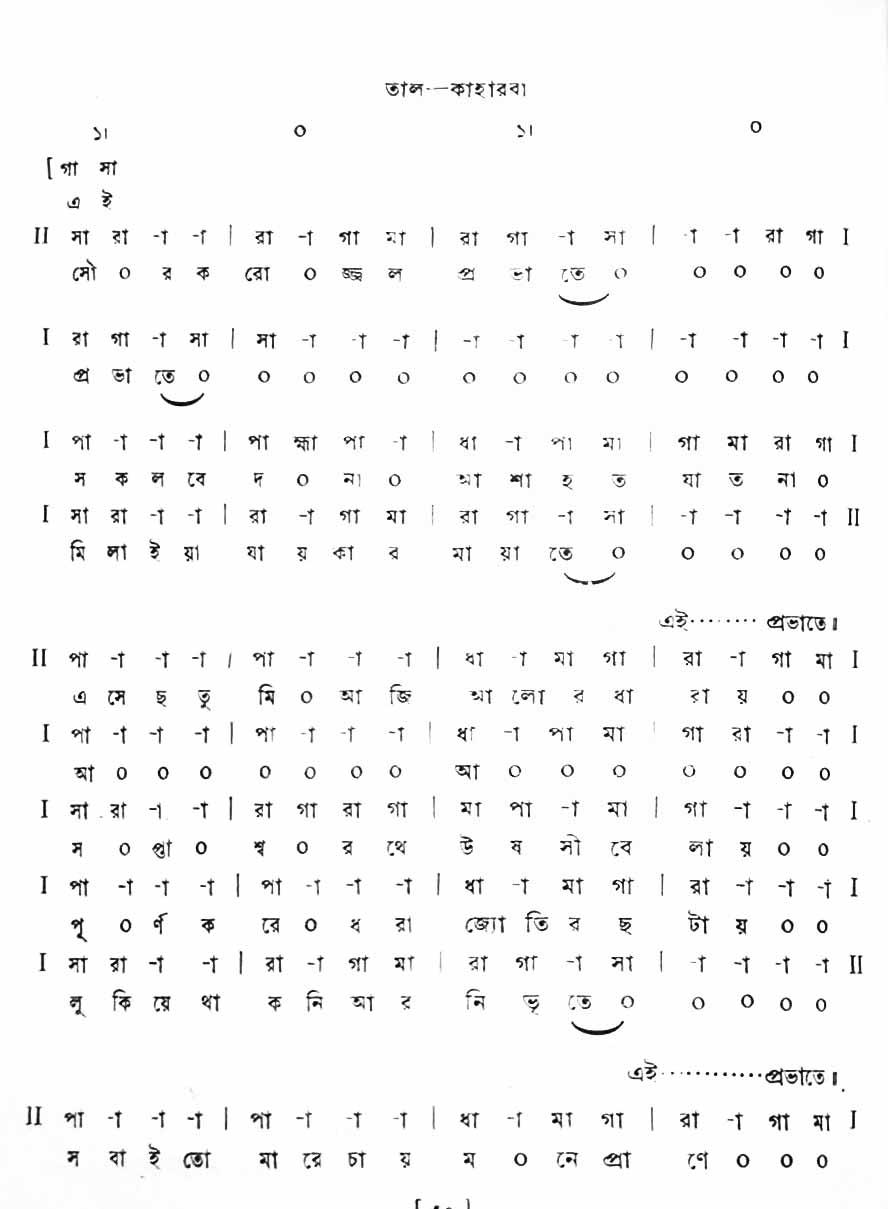 তাল—কাহারবা
১৷ ০ ১৷ ০
[ গা সা
এ ই
II সা রা -া -া | রা -া গা মা | রা গা -া সা | -া -া রা গা I
সৌ ০ র ক রো ০ জ্জ্ব ল প্র ভা তে ০ ০ ০ ০ ০
I রা গা -া সা | সা -া -া -া | -া -া -া -া | -া -া -া -া I
প্র ভা তে ০ ০ ০ ০ ০ ০ ০ ০ ০ ০ ০ ০ ০
I পা -া -া -া | পা হ্মা পা -া | ধা -া পা মা | গা মা রা গা I
স ক ল বে দ ০ না ০ আ শা হ ত যা ত না ০
I সা রা -া -া | রা -া গা মা | রা গা -া সা | -া -া -া -া II
মি লা ই য়া যা য় কা র মা য়া তে ০ ০ ০ ০ ০
এই........ প্রভাতে॥
II পা -া -া -া / পা -া -া -া | ধা -া মা গা | রা -া গা মা I
এ সে ছ তু মি ০ আ জি আ লো র ধা রা য় ০ ০
I পা -া -া -া | পা -া -া -া | ধা -া পা মা | গা রা -া -া I
আ ০ ০ ০ ০ ০ ০ ০ আ ০ ০ ০ ০ ০ ০ ০
I সা রা -া -া | রা গা রা গা | মা পা -া মা | গা -া -া -া I
স ০ প্তা ০ শ্ব ০ র থে উ ষ সী বে লা য় ০ ০
I পা -া -া -া | পা -া -া -া | ধা -া মা গা | রা -া -া -া I
পূ ০ র্ণ ক রে ০ ধ রা জ্যো তি র ছ টা য় ০ ০
I সা রা -া -া | রা -া গা মা | রা গা -া সা | -া -া -া -া II
লু কি য়ে থা ক নি আ র নি ভৃ তে ০ ০ ০ ০ ০
এই.............প্রভাতে॥
II পা -া -া -া | পা -া -া -া | ধা -া মা গা | রা -া গা মা I
স বা ই তো মা রে চা য় ম ০ নে প্রা ণে ০ ০ ০